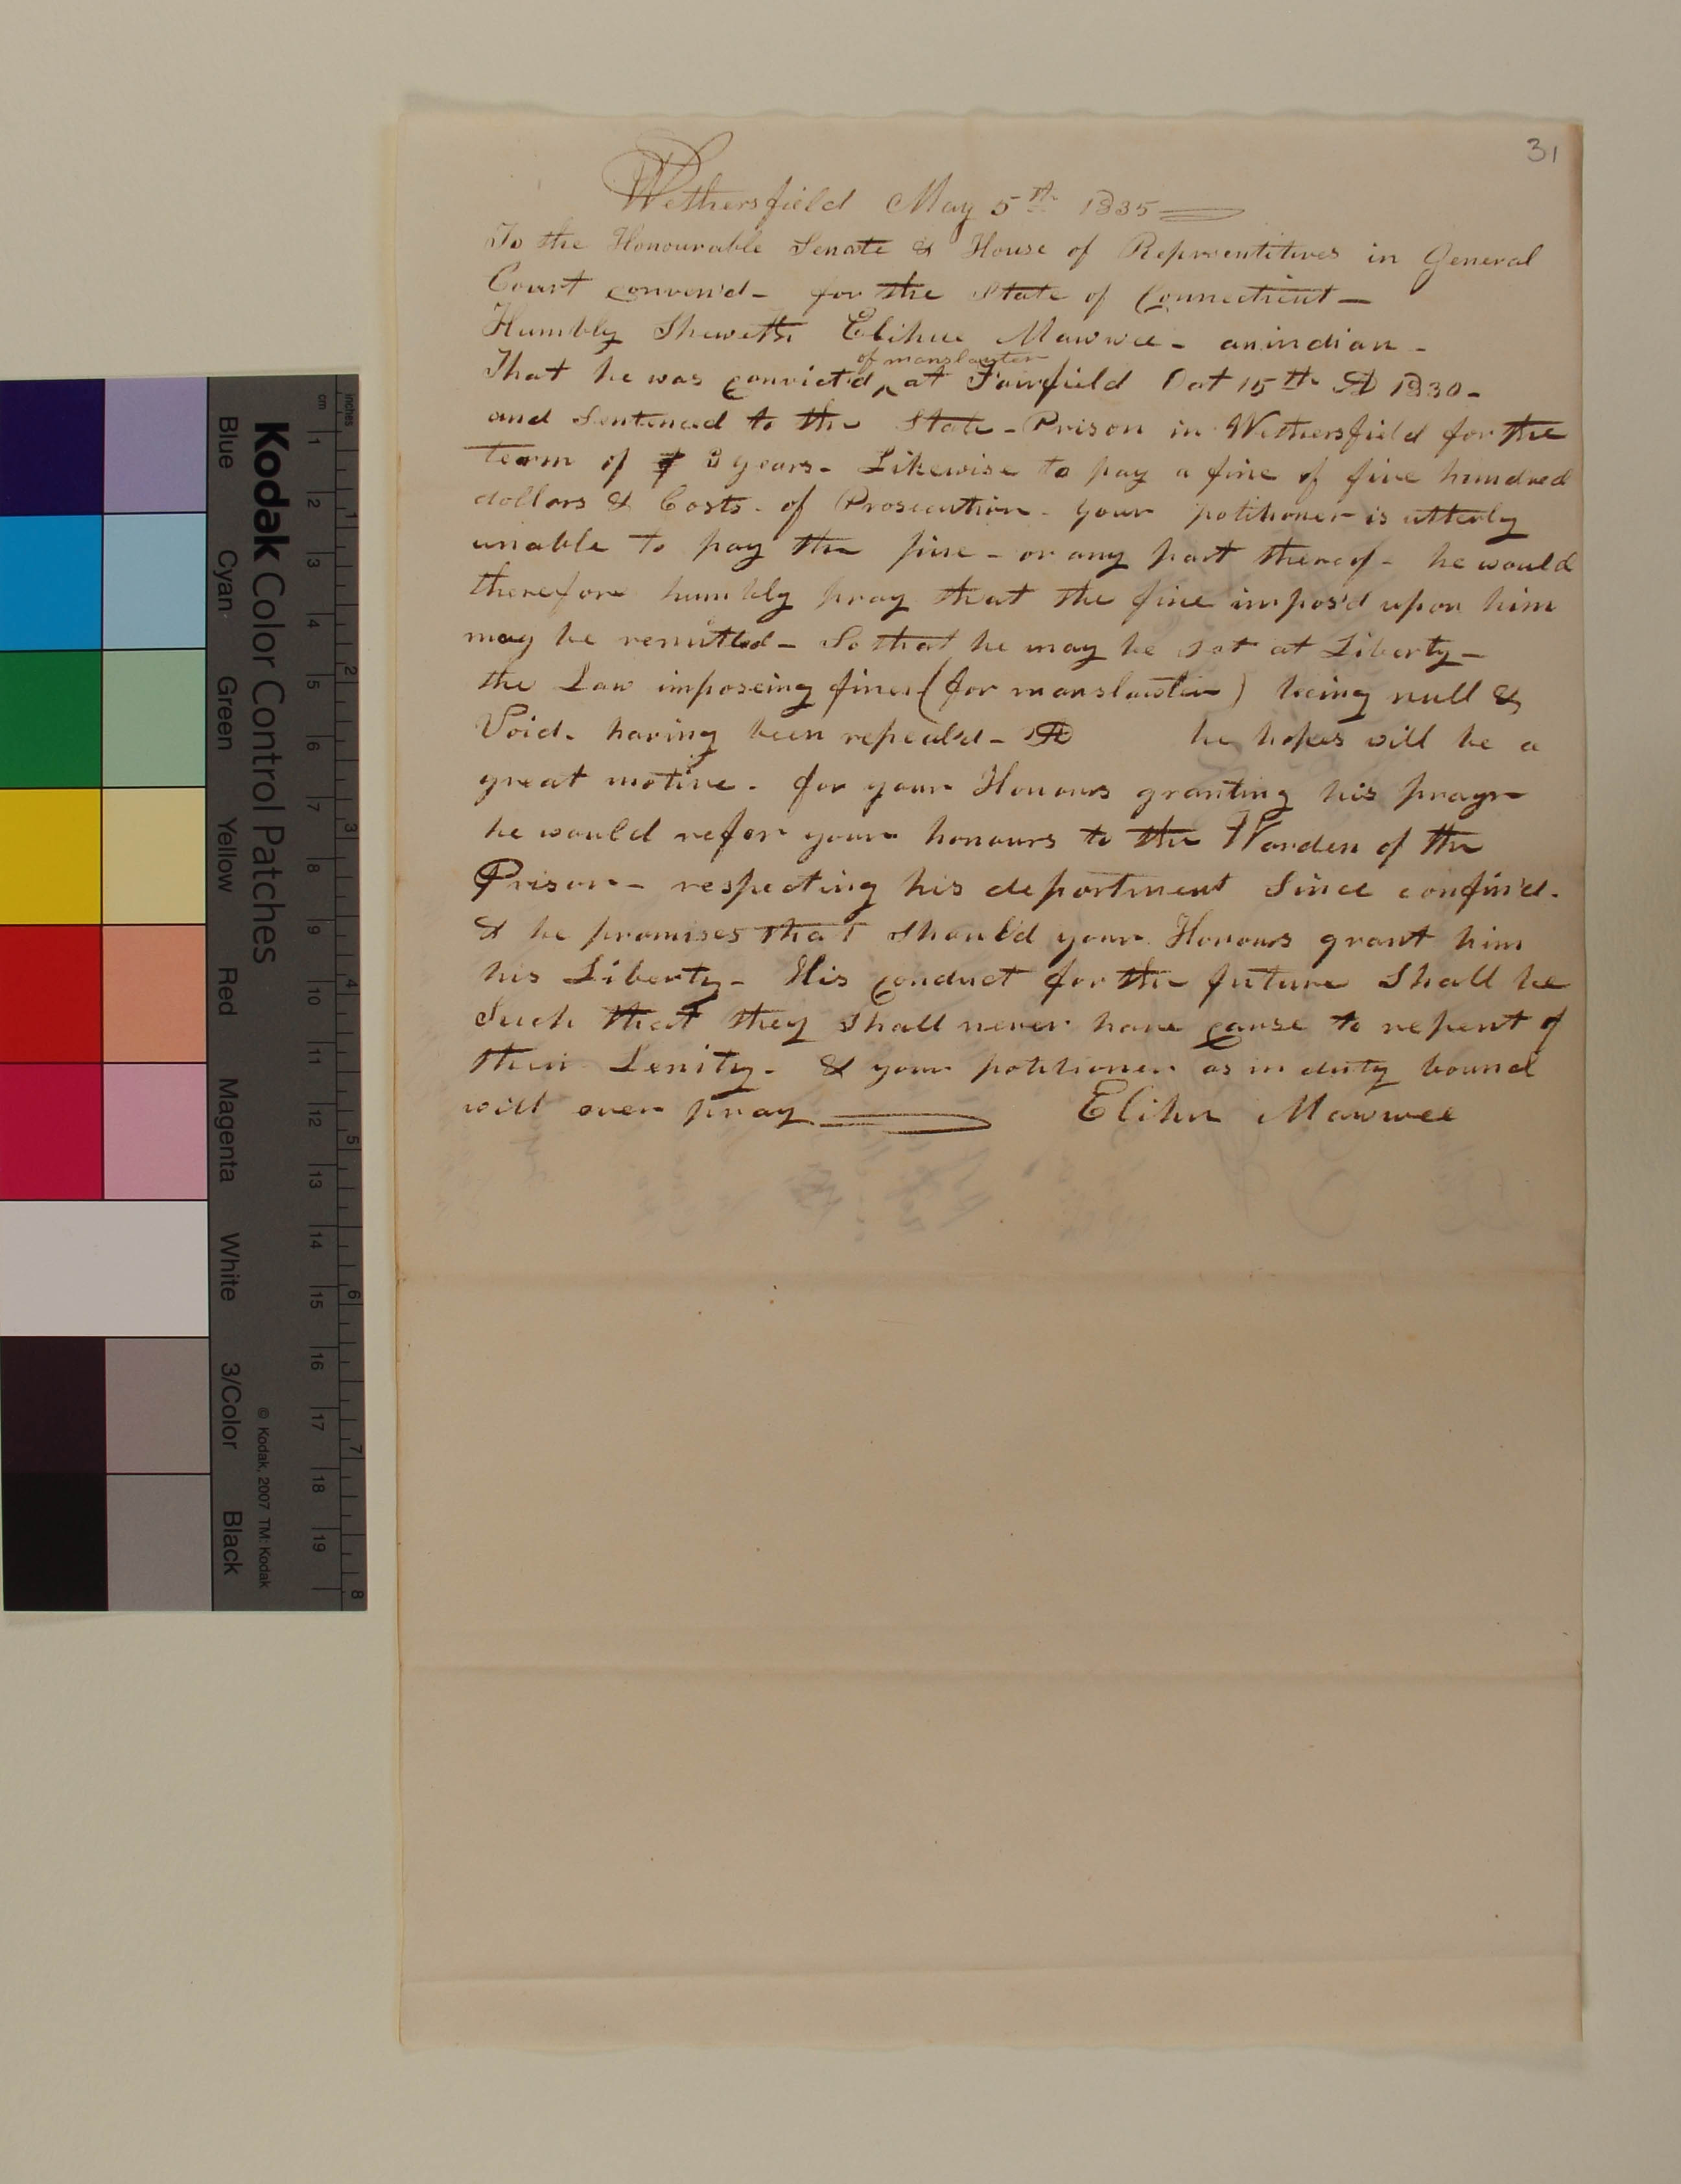 31
Wethersfield May 5th 1835
To the Honourable Senate & House of Represintitives in General
Court conven'd - for the State of Connecticut -
Humbly Sheweth Elihue Mawwee - an indian -
of manslauter
That he was convict'd ^ at Fairfield Oct 15th AD 1830 -
and Sentenced to the State - Prison in Wethersfield for the
tearm of years - Likewise to pay a fine of five hundred
dollars & Costs - of Prosecution - your petitioner is utterly
unable to pay the fine - or any part thereof - he would
therefore humbly pray that the fine impos'd upon him
may be remitted - So that he may be set at Liberty -
the Law imposeing fines (for manslauter) being null &
Void - having been repeald - AD he hopes will be a
great motive - for your Honours granting his prayr
he would refer your honours to the Warden of the
Prison - respecting his deportment Since confin'd -
& he promises that should your Honours grant him
his Liberty - His conduct for the future Shall be
Such that they shall never have cause to repent of
their Lenity - & your petitioner as in duty bound
will ever pray Elihu Mawwee
Kodak Color Control Patches
© Kodak, 2007 TM: Kodak
Blue Cyan Green Yellow Red Magenta White 3/Color Black
cm 1 2 3 4 5 6 7 8 9 10 11 12 13 14 15 16 17 18 19
inches 1 2 3 4 5 6 7 8